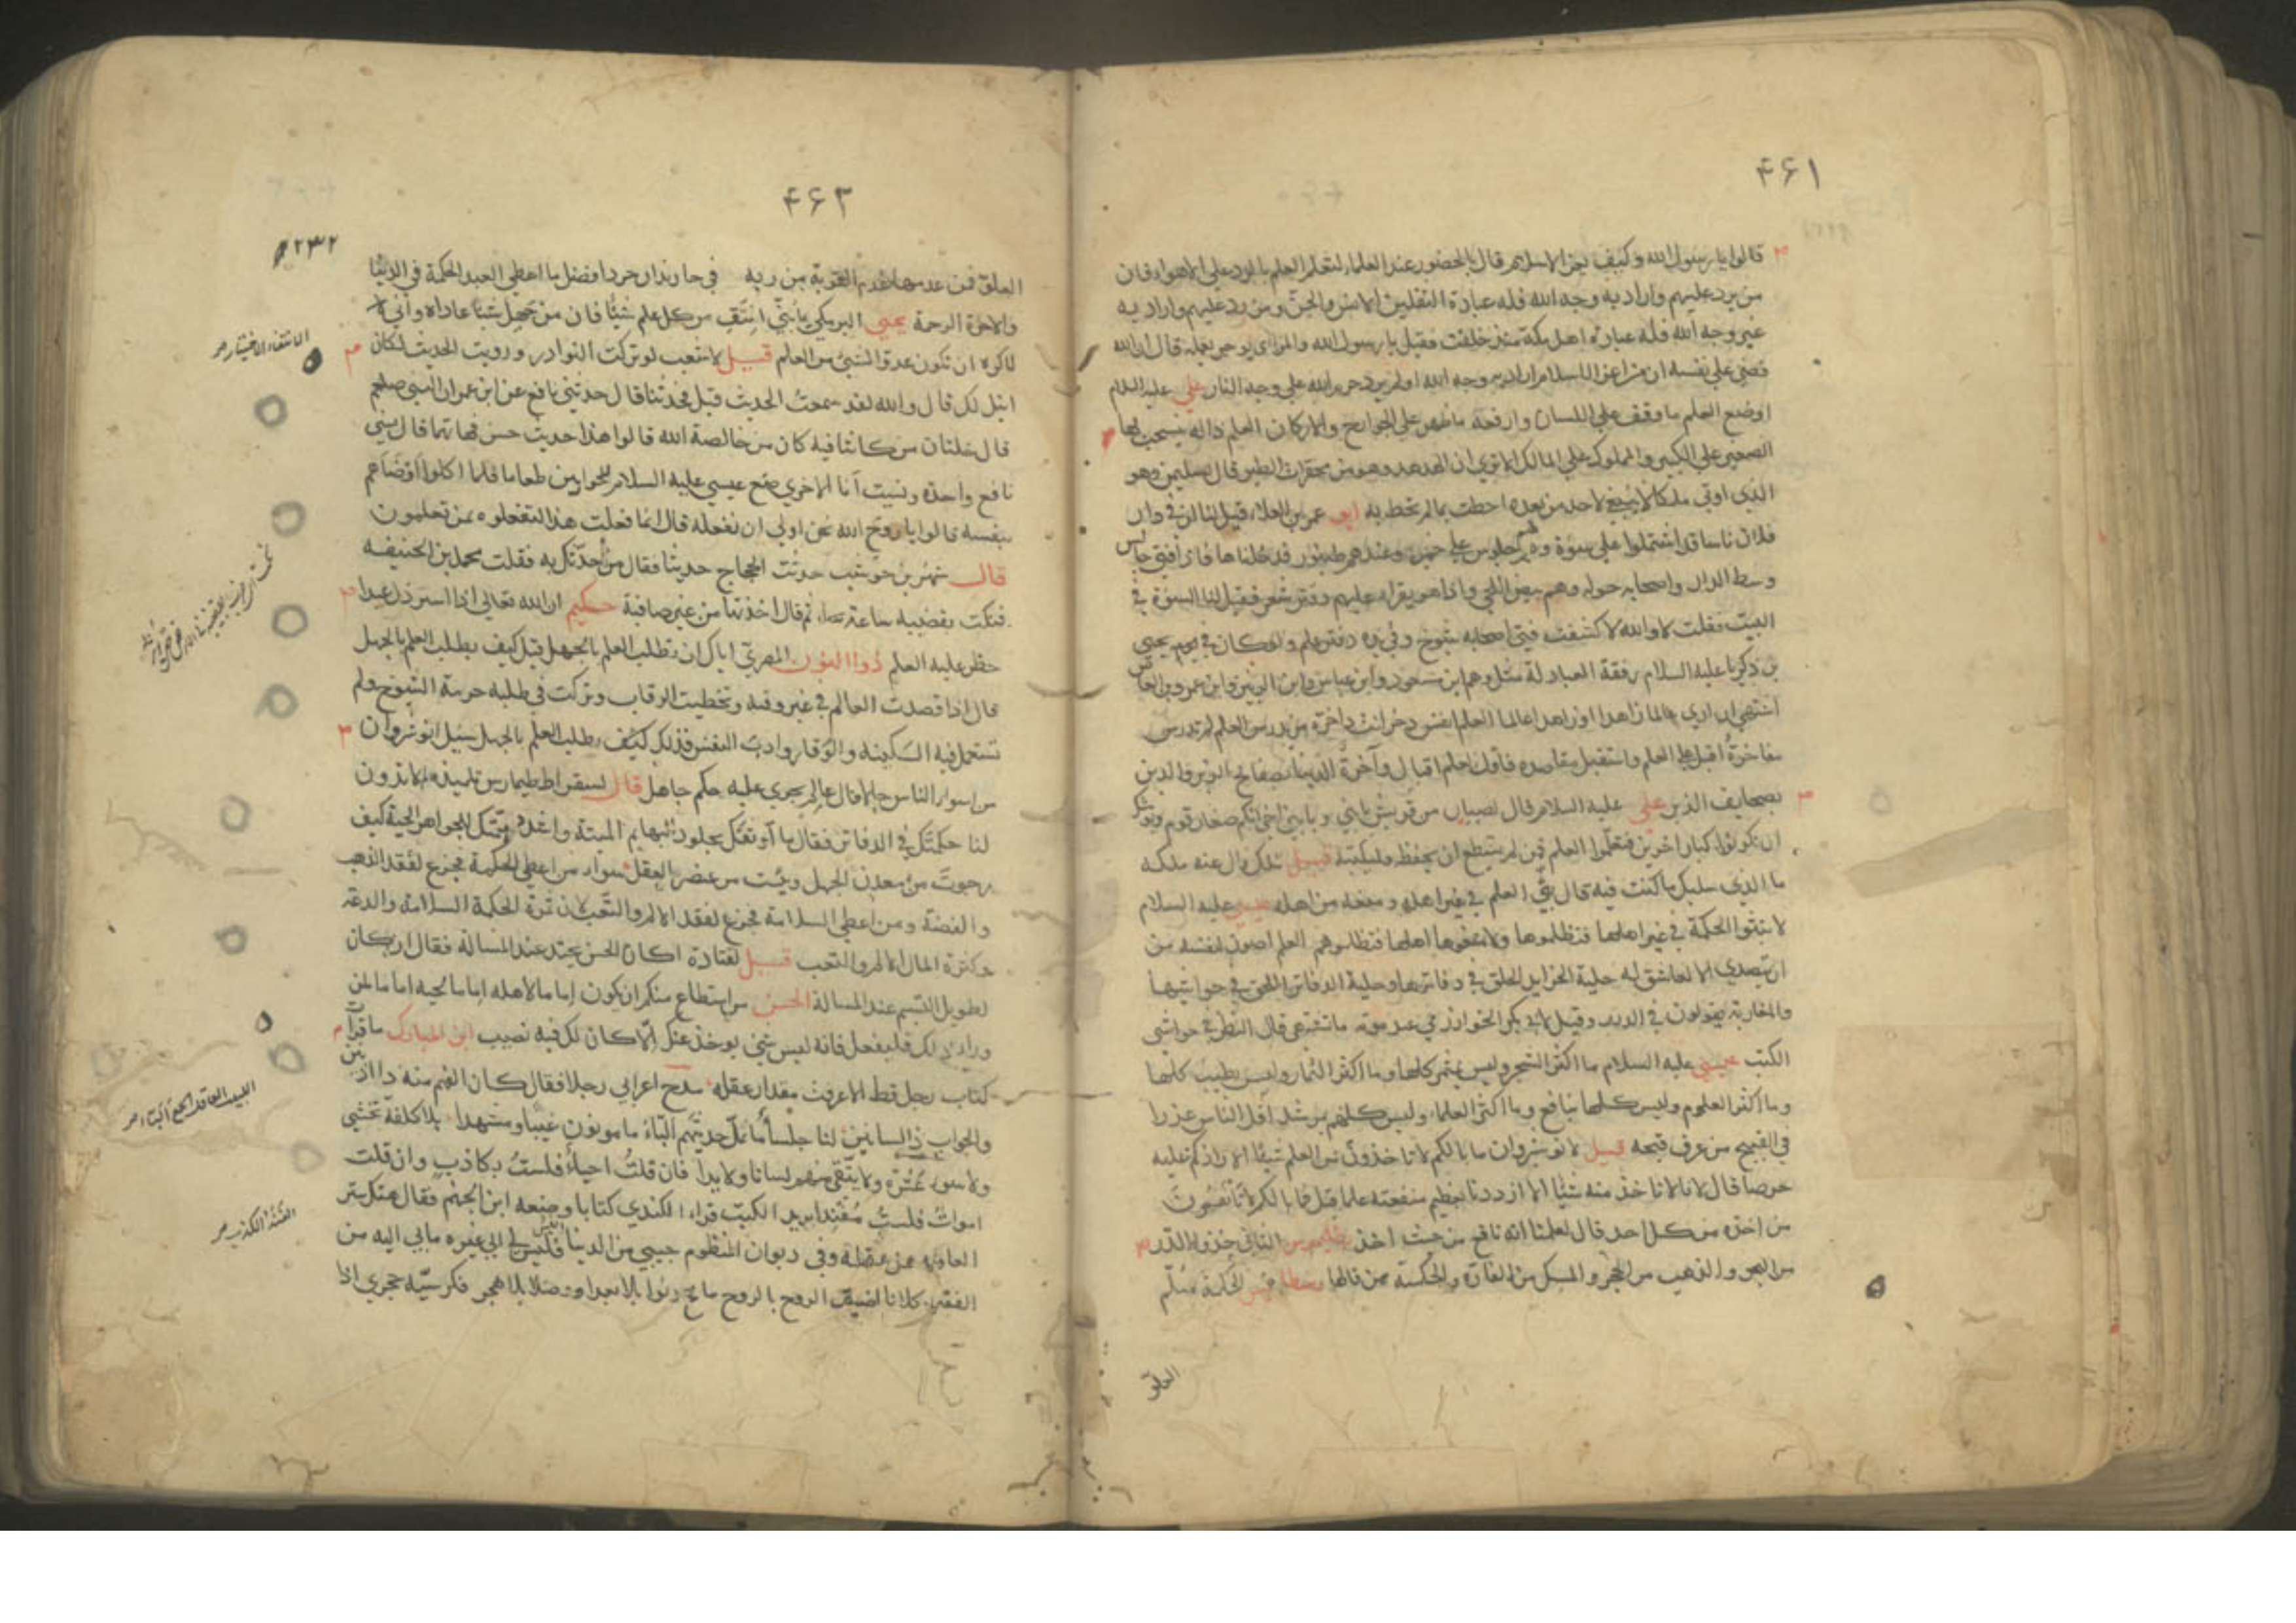 ۴۶۱
قالوا يا رسول الله وكيف يعز الاسلام قال بالحضور عند العلماء لتعلم العلم بالرد علي الاهواء فان
من يرد عليهم واراد به وجه الله فله عبادة الثقلين الانس والجن ومن رد عليهم واراد به
غير وجه الله فله عبادة اهل مكة منذ خلقت فقيل يا رسول الله والمرائي يوجر بعمله قال ان الله
قضي علي نفسه ان من اعز الاسلام اراد به وجه الله او لم يرد حرم الله علي وجهه النار علي عليه السلام
اوضع العلم ما وقف علي اللسان وارفعه ما ظهر علي الجوارح والاركان العلم دالة يسحب لها
الصغير علي الكبير والمملوك علي المالك الا تري ان الهدهد وهو من محقرات الطير قال لسليمن وهو
الذي اوتي ملكا لا ينبغي لاحد من بعده احطت بما لم تحط به ابو عمرو بن العلاء قيل لنا ان في دار
فلان ناسا قد اشتملوا علي سوءة وهم جلوس علي خمرة وعندهم طنبور فدخلنا فاذا فتي جالس
وسط الدار واصحابه حوله وهم بيض اللحي واذا هو يقرا عليهم دفتر شعر فقيل لنا السوءة في
البيت فقلت لا والله لا كشفت فتي اصحابه شيوخ وفي يده دفتر علم ولو كان في يوم يحيي
بن زكريا عليه السلام رفقة العبادلة مثل وهم ابن مسعود وابن عباس وابن الزبير وابن عمرو بن العاص
اشتهي ان اري عالما زاهدا او زاهدا عالما العلم انفس ذخر انت ذاخره من يدرس العلم لم تدرس
مفاخره اقبل علي العلم واستقبل مقاصده فاول العلم اقبال وآخره
بصحايف الذين علي عليه السلام قال لصبيان من قريش يا بني ويا بني اخي انكم صغار قوم ويوشك
ان تكونوا كبار اخرين فتعلموا العلم فمن لم يستطع ان يحفظه فليكتبه قيل لملك زال عنه ملكه
ما الذي سلبك ما كنت فيه قال بثي العلم في غير اهله ومنعه من اهله عيسي عليه السلام
لا تبثوا الحكمة في غير اهلها فتظلموها ولا تمنعوها اهلها فتظلموهم العلم اصون لنفسه من
ان يتصدي الا لعاشق له حلية الخرايد الحلق في دفاترها وحلية الدفاتر اللحق في حواشيها
والمغاربة يقولون في الديد وقيل لابي بكر الخوارزمي عند موته ما تشتهي قال النظر في حواشي
الكتب عيسي عليه السلام ما اكثر الشجر وليس بمثمر كلها وما اكثر الثمار وليس بطيب كلها
وما اكثر العلوم وليس كلها بنافع وما اكثر العلماء وليس كلهم بمرشد اقل الناس عذرا
في القبيح من عرف قبحه قيل لانوشروان ما بالكم لا تاخذون من العلم شيئا الا زادكم عليه
حرصا قال لانا لا ناخذ منه شيئا الا ازددنا بعظيم منفعته علما قيل فما بالكم لا تانفون
من اخذه من كل احد قال لعلمنا انه نافع من حيث اخذ
من البحر والذهب من الحجر والمسك من الفارة والحكمة ممن قالها الحكمة سلم
العلو
۴۶۳
۲۳۲
العلو فمن عدمها عدم القربة من ربه في افضل ما اعطي العبد الحكمة في الدنيا
والاخرة الرحمة يحيي البرمكي يا بني انتق من كل علم شيئا فان من جهل شيئا عاداه واني
لاكره ان تكون عدوا لشيئ من العلم قيل لاشعب لو تركت النوادر ورويت الحديث لكان
انبل لك قال والله لقد سمعت الحديث قيل فحدثنا قال حدثني نافع عن ابن عمر ان النبي صلعم
قال خلتان من كانتا فيه كان من خالصة الله قالوا هذا حديث حسن فهاتهما قال نسي
نافع واحدة ونسيت انا الاخري صنع عيسي عليه السلام للحواريين طعاما فلما اكلوا اوضأهم
بنفسه قالوا يا روح الله نحن اولي ان نفعله قال انما فعلت هذا لتفعلوه بمن تعلمون
قال شهر بن حوشب حدثت الحجاج حديثا فقال من حدثك به فقلت محمد بن الحنيفه
فنكت بقضيبه ساعة ثم قال اخذتها من عين صافية حكيم ان الله تعالي اذا استرذل عبدا
حظر عليه العلم ذوا النون المصري اياك ان تطلب العلم بالجهل قيل كيف يطلب العلم بالجهل
قال اذا قصدت العالم في غير وقته وتخطيت الرقاب وتركت في طلبه حرمة الشيوخ ولم
تستعمل فيه السكينة والوقار وادب النفس فذلك كيف يطلب العلم بالجهل سئل انوشروان
من اسوأ الناس حالا قال عالم يجري عليه حكم جاهل قال لسقراط طيمارس تلميذه الا تدون
لنا حكمتك في الدفاتر فقال ما اوثقك بجلود البهايم الميتة واشد تهمتك للجواهر الحية كيف
رجوت من معدن الجهل ويئست من عنصر العقل سوار من اعطي الحكمة فجزع لفقد الذهب
والفضة ومن اعطي السلامة فجزع لفقد الالم والتعب لان ثمرة الحكمة السلامة والدعة
وكثرة المال الالم والتعب قيل لقتادة اكان الحسن يحتد عند المسالة فقال ان كان
لطويل التبسم عند المسالة الحسن من استطاع منكم ان يكون اماما لاهله اماما لحيه اماما لمن
وراء ذلك فليفعل فانه ليس شئ يوخذ عنك الا كان لك فيه نصيب ابن المبارك ما قرات
كتاب رجل قط الا عرفت مقدار عقله مدح اعرابي رجلا فقال كان الفهم منه ذا اذنين
والجواب ذا لسانين لنا جلساء ما نمل حديثهم البّاء مامونون غيبا ومشهدا بلا كلفة تخشي
ولا سوء عشرة ولا يتقي منهم لسانا ولا يدا فان قلت احياء فلست بكاذب وان قلت
اموات فلست مفندا يريد الكتب قراء الكندي كتابا وصنعه ابن الجهم فقال هتك ستر
العافية عن عقله وفي ديوان المنظوم حبيبي من الدنيا فليس لي الي غيره مابي اليه من
الفقر كلانا لضيق الروح بالروح
الانتقاء الاختيار
اللبيب العاقل الجمع البّاء
الفند الكذب